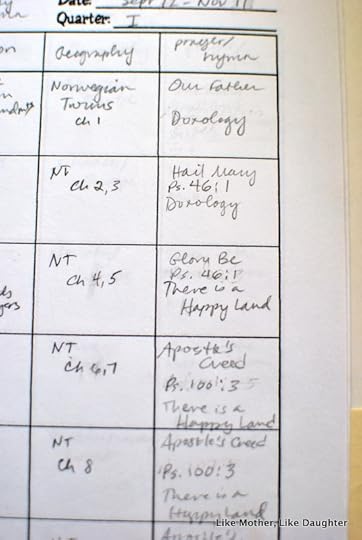 Date: Sept 12 - Nov 11
Quarter: I
Geography
prayer/
hymn
Norwegian
Twins
ch 1
Our Father
Doxology
NT
ch 2,3
Hail Mary
Ps. 46:1
Doxology
NT
ch 4,5
Glory Be
Ps. 46:1
There is a
Happy Land
NT
ch 6,7
Apostle's
Creed
Ps. 100:3
There is a
Happy Land
NT
ch 8
Apostle's Creed
Ps. 100:3
There is a
Happy Land
Apostle's
Like Mother, Like Daughter